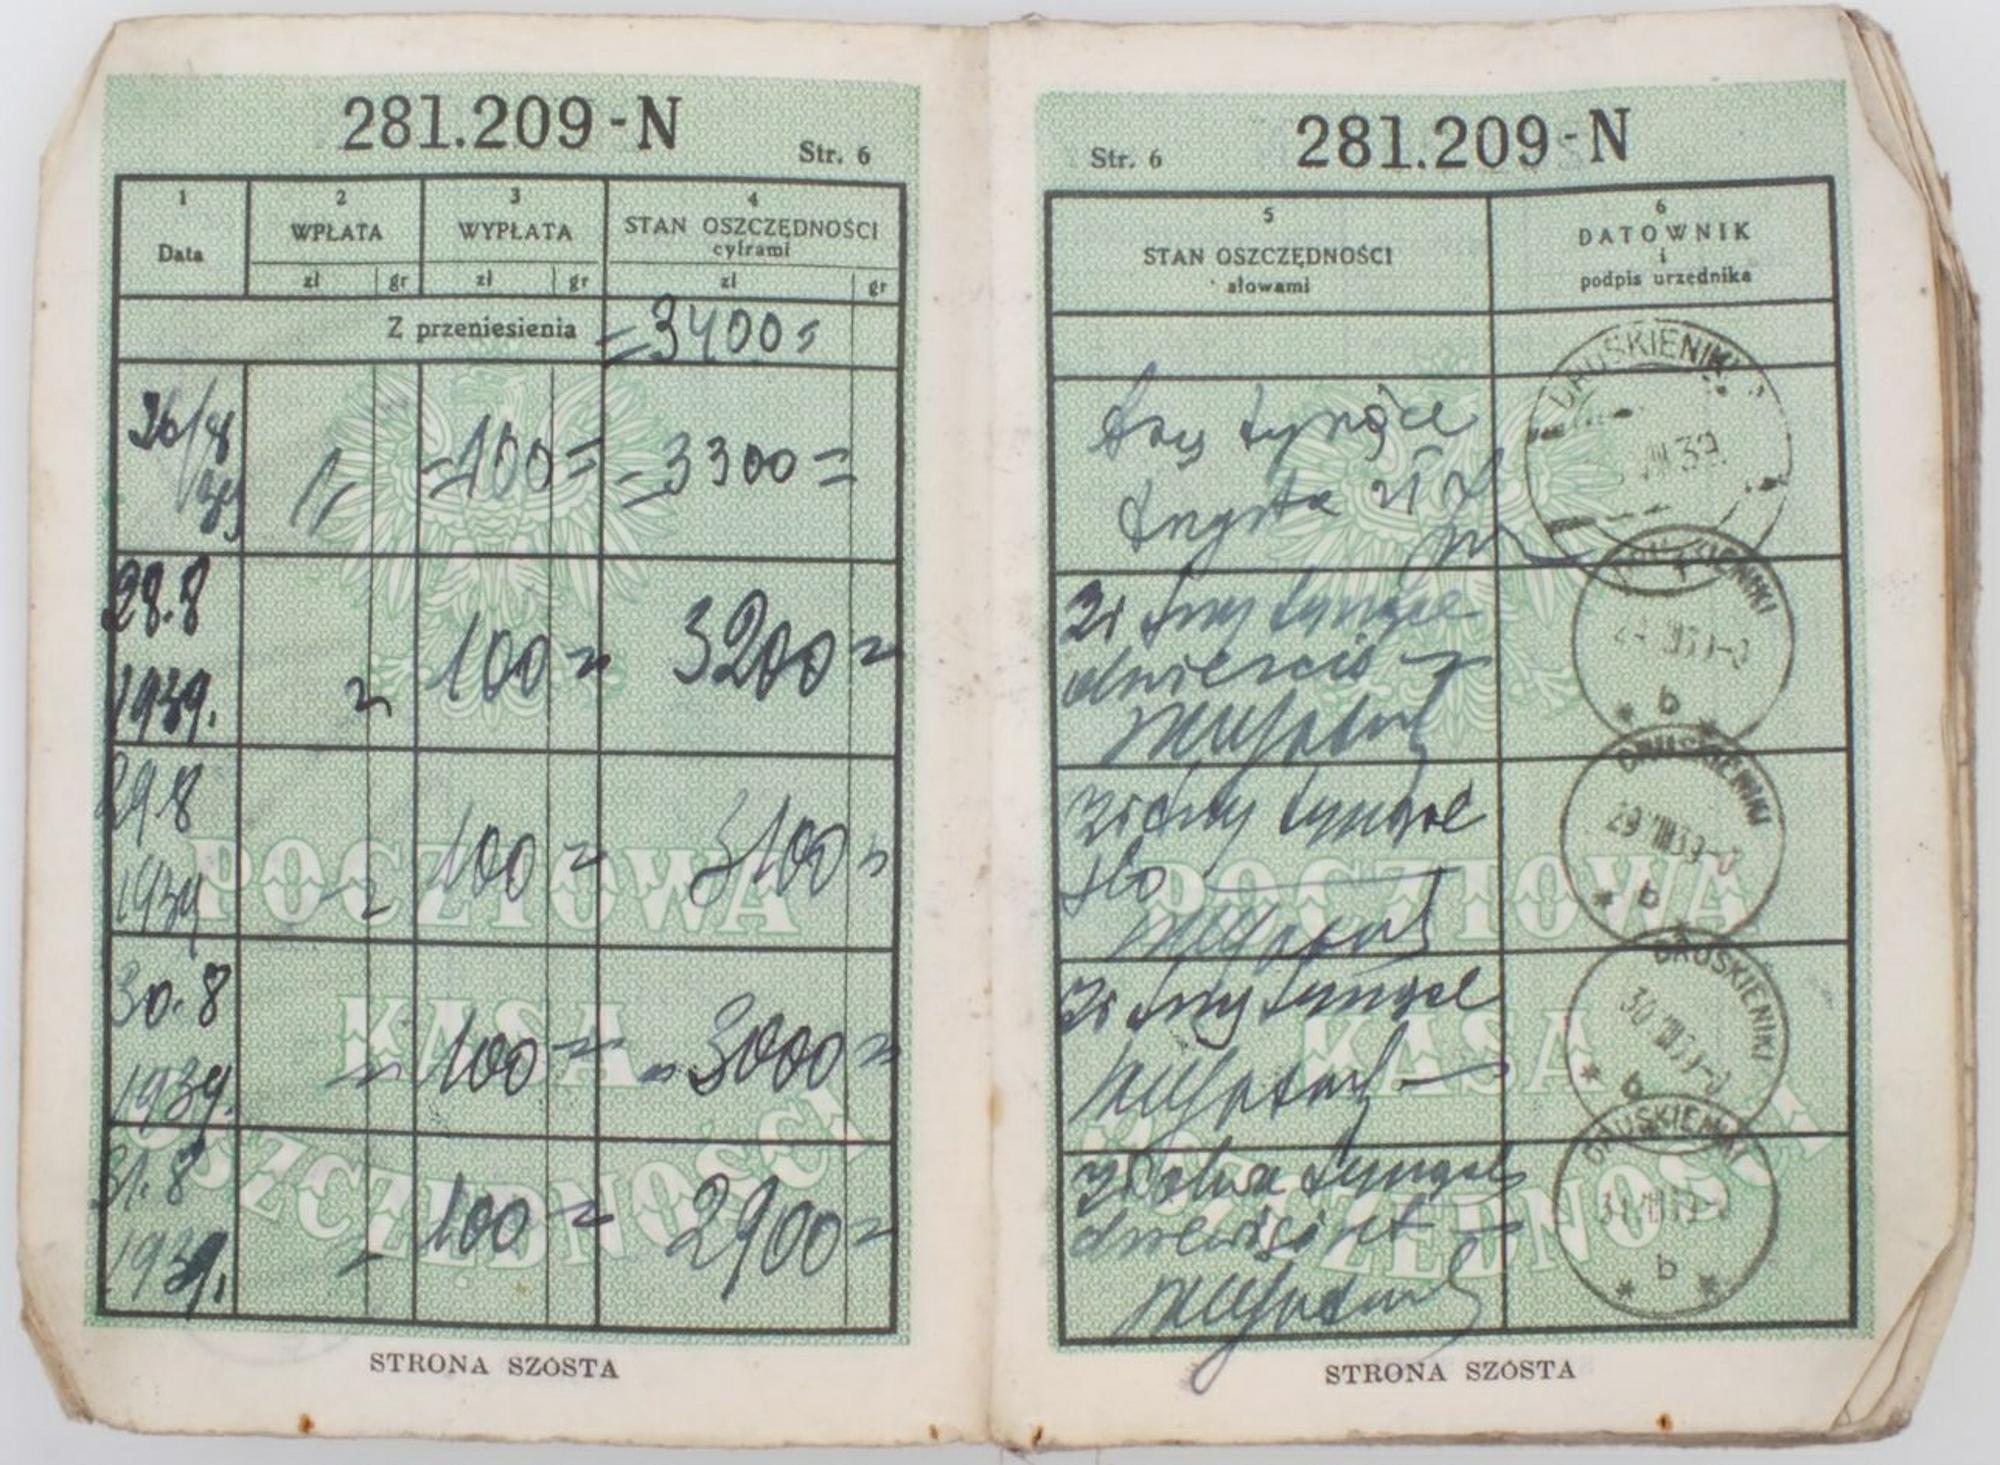 281.209-N
Str. 6
1 2 3 4
Data WPŁATA WYPŁATA STAN OSZCZĘDNOŚCI
cyframi
zł gr zł gr zł gr
Z przeniesienia =3400=
26/8 =100= =3300=
28.8 100= 3200=
1939.
29.8 100= 3100=
1939
30.8 100= 3000=
1939.
31.8 100= 2900=
1939.
POCZTOWA
KASA
OSZCZĘDNOŚCI
STRONA SZÓSTA
Str. 6
281.209-N
5 6
STAN OSZCZĘDNOŚCI DATOWNIK
słowami i
podpis urzędnika
trzy tysiące
trzysta zł
DRUSKIENIKI
VIII 39
Zł trzy tysiące
dwieście
DRUSKIENIKI
b
Zł trzy tysiące
sto
DRUSKIENIKI
29 VIII 39
b
Zł trzy tysiące
DRUSKIENIKI
30 VIII 39
b
Zł dwa tysiące
dziewięćset
DRUSKIENIKI
31 VIII 39
b
POCZTOWA
KASA
OSZCZĘDNOŚCI
STRONA SZÓSTA